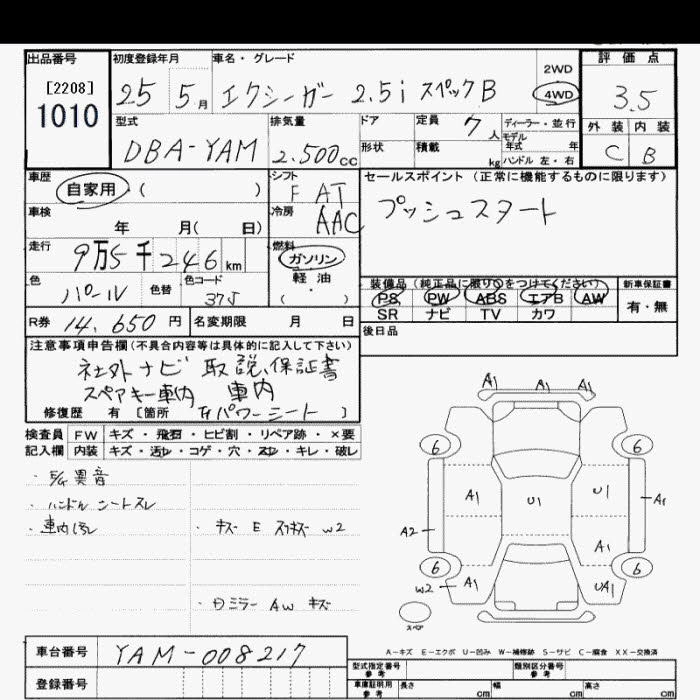 出品番号
[2208]
1010
初度登録年月
25 5月
車名・グレード
エクシーガー 2.5i スペックB
2WD
4WD
評価点
3.5
型式
DBA-YAM
排気量
2.500cc
ドア
形状
定員 7人
積載 kg
ディーラー・並行
モデル
年式 年
ハンドル 左・右
外装 内装
C B
車歴
自家用 ( )
シフト
F AT
セールスポイント (正常に機能するものに限ります)
プッシュスタート
車検
年 月( 日)
冷房
AAC
走行
9万5千246km
燃料
ガソリン
軽・油
( )
色
パール
色替
色コード
37J
装備品 (純正品に限り○をつけてください)
PS PW ABS エアB AW
SR ナビ TV カワ
新車保証書
有・無
R券 14,650円
名変期限 月 日
後日品
注意事項申告欄(不具合内容等は具体的に記入して下さい)
社外ナビ 取説、保証書
スペアキー車内 車内
修復歴 有 [箇所 パワーシート ]
検査員 FW キズ・飛石・ヒビ割・リペア跡・×要
記入欄 内装 キズ・汚れ・コゲ・穴・スレ・キレ・破レ
・異音
・ハンドル シートスレ
・車内汚レ
・キズ E W2
・ミラー AW キズ
A1 A1 A1
6 6
A1 U1 U1 A1
A2 A1
6 6
W2 A1 UA1
スペア
A-キズ E-エクボ U-凹み W-補修跡 S-サビ C-腐食 XX-交換済
車台番号
YAM-008217
登録番号
型式指定番号
参考
類別区分番号
参考
車庫証明用
参考
長さ cm 幅 cm 高さ cm